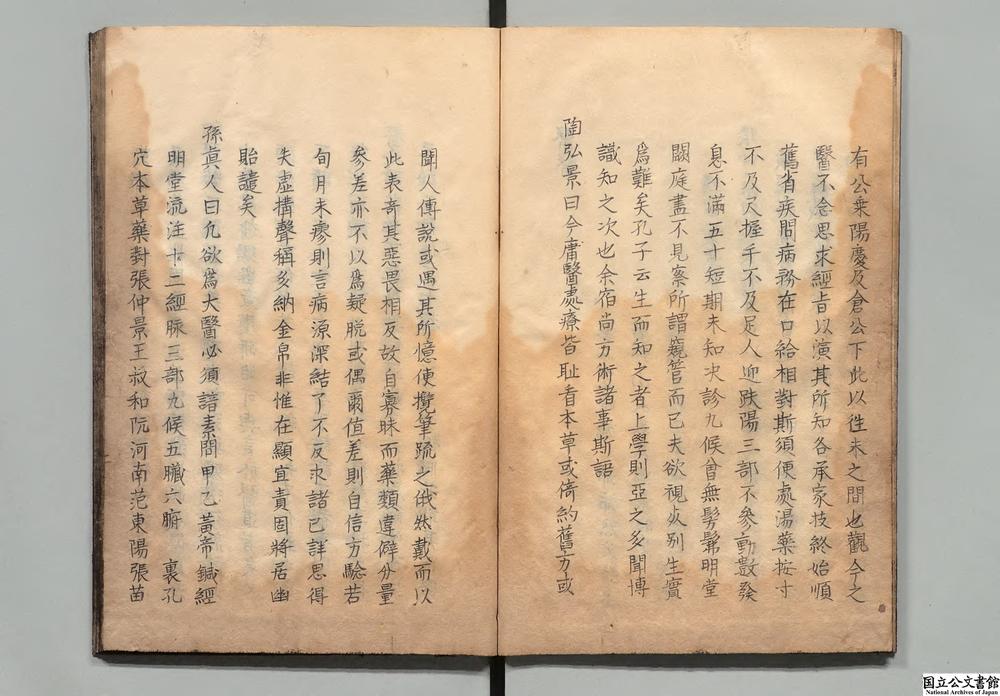 有公乗陽慶及倉公下此以徃未之間也觀今之
醫不念思求經旨以演其所知各承家技終始順
舊省疾問病務在口給相對斯須便處湯藥按寸
不及尺握手不及足人迎趺陽三部不参動數發
息不滿五十短期未知决診九候曾無髣髴明堂
闕庭盡不見察所謂窺管而已夫欲視死别生實
爲難矣孔子云生而知之者上學則亞之多聞博
識知之次也余宿尚方術諸事斯語
陶弘景曰今庸醫處療皆耻看本草或倚約舊方或
聞人傳說或遇其所憶便攬筆疏之俄然戴而以
此表奇其惡畏相反故自寡昧而藥類違僻分量
参差亦不以爲疑脱或偶爾值差則自信方驗若
旬月未瘳則言病源深結了不反求諸已詳思得
失虛搆聲稱多納金帛非惟在顯宜責固將居幽
貽譴矣
孫眞人曰凢欲爲大醫必須諳素問甲乙黃帝鍼經
明堂流注十二經脉三部九候五臓六腑 裏孔
穴本草藥對張仲景王叔和阮河南范東陽張苗
国立公文書館
National Archives of Japan